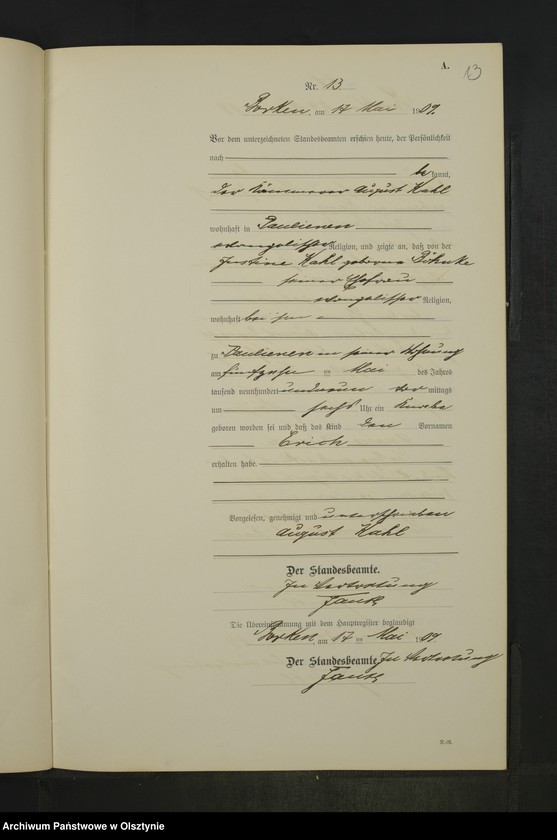 A.
13
Nr. 13
Borken, am 17 Mai 1909.
Vor dem unterzeichneten Standesbeamten erschien heute, der Persönlichkeit
nach
bekannt,
der Kämmerer August Kahl
wohnhaft in Paulienen
evangelischer Religion, und zeigte an, daß von der
Justine Kahl geborene Böhnke
seiner Ehefrau
evangelischer Religion,
wohnhaft bei ihm
zu Paulienen in seiner Wohnung
am fünfzehnten Mai des Jahres
tausend neunhundert und neun vormittags
um sechs Uhr ein Knabe
geboren worden sei und daß das Kind den Vornamen
Erich
erhalten habe.
Vorgelesen, genehmigt und unterschrieben
August Kahl
Der Standesbeamte.
In Vertretung
Die Übereinstimmung mit dem Hauptregister beglaubigt
Borken, am 17 ten Mai 1909
Der Standesbeamte. In Vertretung
Archiwum Państwowe w Olsztynie